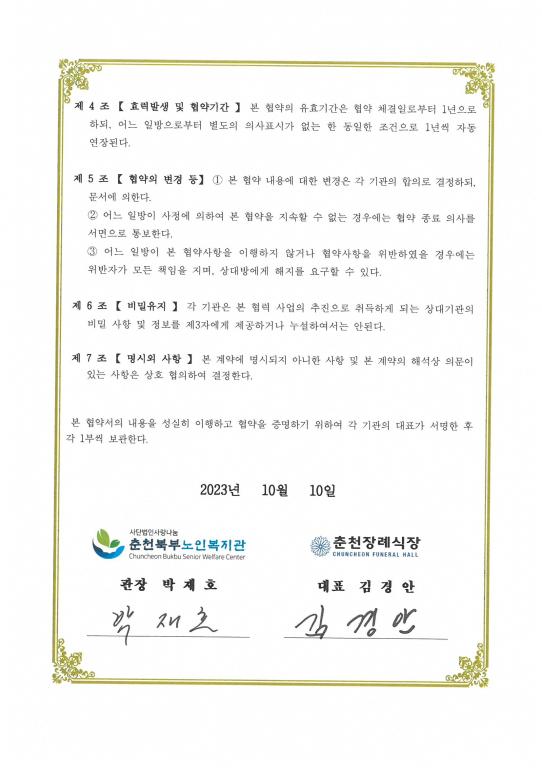 제 4 조 【 효력발생 및 협약기간 】 본 협약의 유효기간은 협약 체결일로부터 1년으로
하되, 어느 일방으로부터 별도의 의사표시가 없는 한 동일한 조건으로 1년씩 자동
연장된다.
제 5 조 【 협약의 변경 등】 ① 본 협약 내용에 대한 변경은 각 기관의 합의로 결정하되,
문서에 의한다.
② 어느 일방이 사정에 의하여 본 협약을 지속할 수 없는 경우에는 협약 종료 의사를
서면으로 통보한다.
③ 어느 일방이 본 협약사항을 이행하지 않거나 협약사항을 위반하였을 경우에는
위반자가 모든 책임을 지며, 상대방에게 해지를 요구할 수 있다.
제 6 조 【 비밀유지 】 각 기관은 본 협력 사업의 추진으로 취득하게 되는 상대기관의
비밀 사항 및 정보를 제3자에게 제공하거나 누설하여서는 안된다.
제 7 조 【 명시외 사항 】 본 계약에 명시되지 아니한 사항 및 본 계약의 해석상 의문이
있는 사항은 상호 협의하여 결정한다.
본 협약서의 내용을 성실히 이행하고 협약을 증명하기 위하여 각 기관의 대표가 서명한 후
각 1부씩 보관한다.
2023년 10월 10일
사단법인사랑나눔
춘천북부노인복지관
Chuncheon Bukbu Senior Welfare Center
춘천장례식장
CHUNCHEON FUNERAL HALL
관장 박 재 호
대표 김 경 안
박 재 호
김 경 안